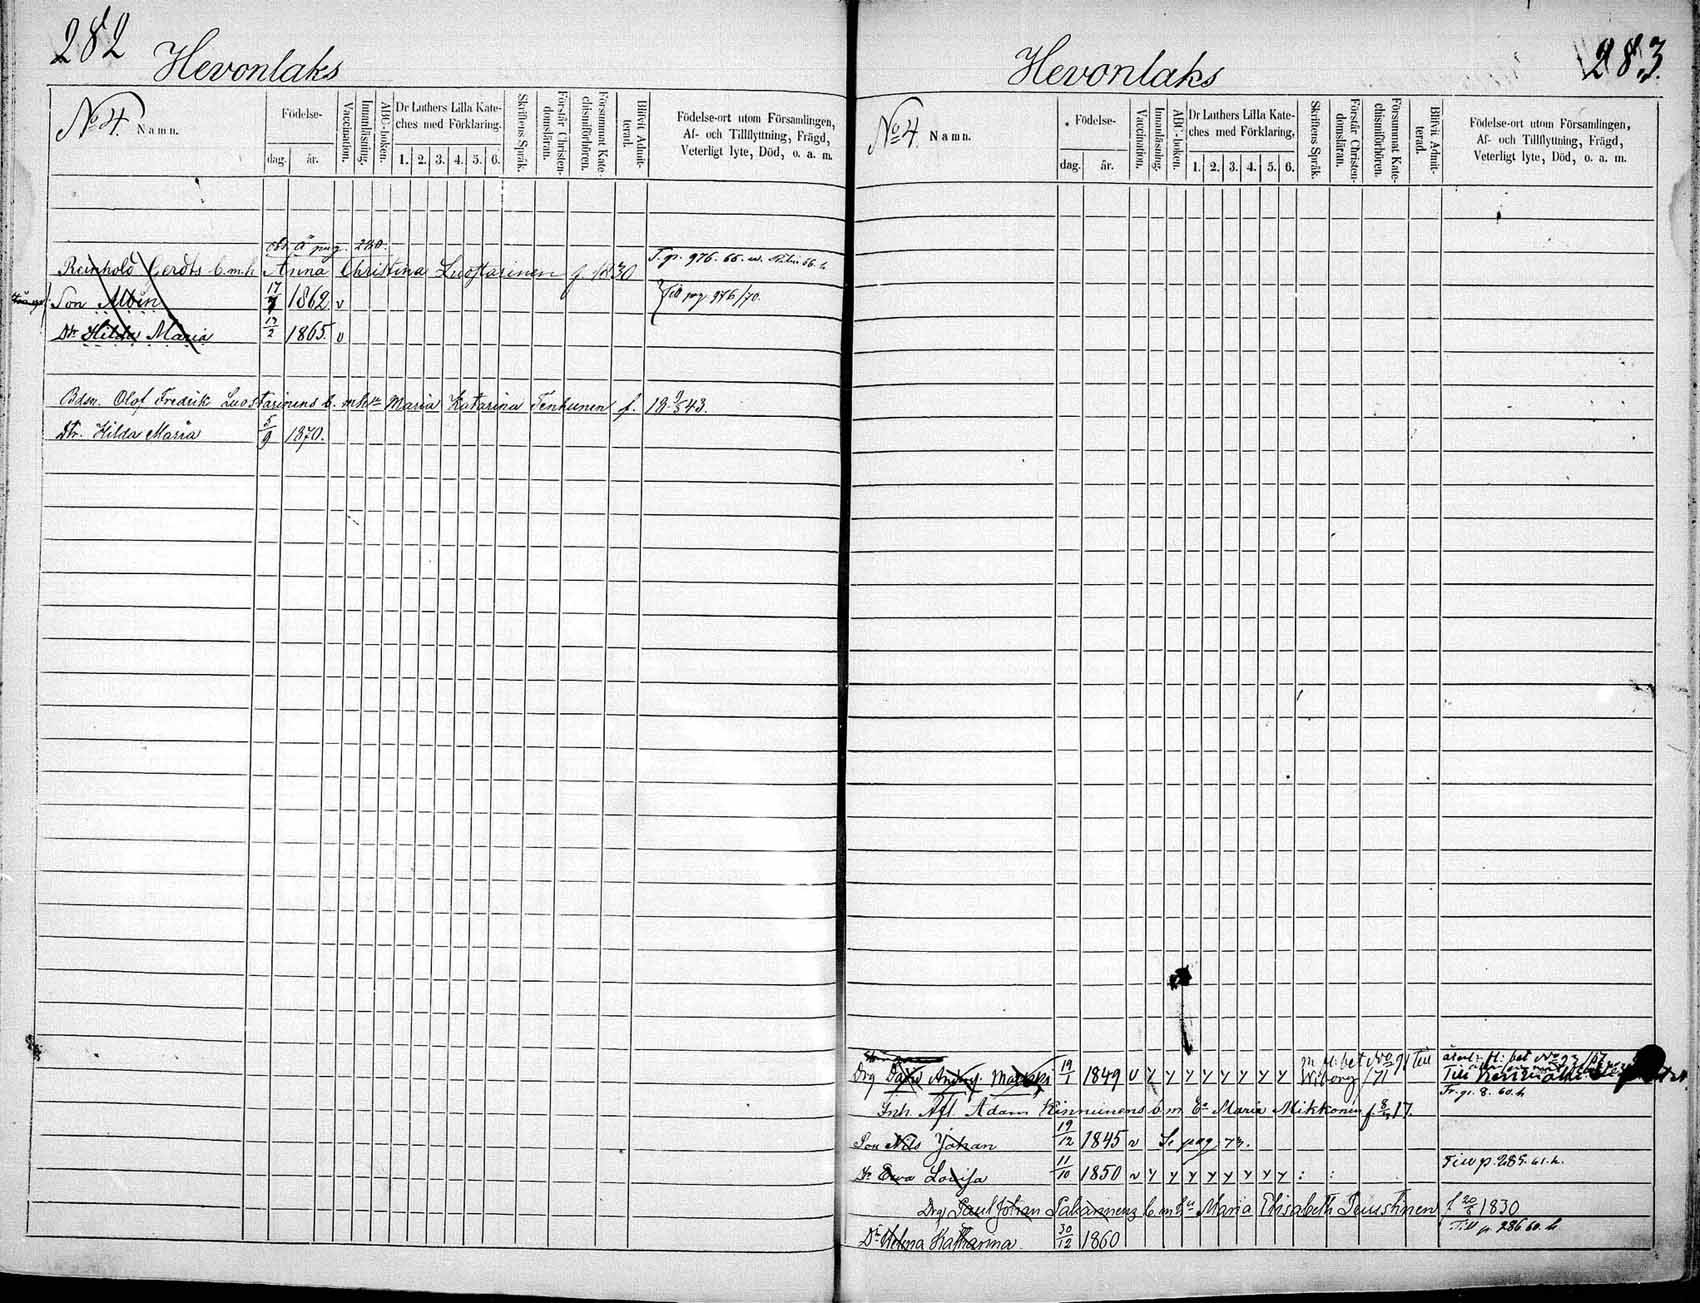 282 Hevonlaks
No 4. Namn.
Födelse-
dag. år.
Vaccination.
Innanläsning.
ABC-boken.
Dr Luthers Lilla Kate-
ches med Förklaring.
1. 2. 3. 4. 5. 6.
Skriftens Språk.
Förstår Christen-
domsläran.
Försummat Kate-
chismiförhören.
Blifvit Admit-
terad.
Födelse-ort utom Församlingen,
Af- och Tillflyttning, Frägd,
Veterligt lyte, Död, o. a. m.
å pag. 280.
Reinhold Gerdts b.m.h. Anna Christina Luostarinen f. 1830
Son Albin 17/7 1862 v Till pag 976/70.
Dr. Hilda Maria 12/2 1865. v
Bdsn. Olof Fredrik Luostarinens b. m. h. Maria Katarina Tenhunen f. 18 9/5 43.
Dr. Hilda Maria 5/9 1870.
Hevonlaks 283.
No 4. Namn.
Födelse-
dag. år.
Vaccination.
Innanläsning.
ABC-boken.
Dr Luthers Lilla Kate-
ches med Förklaring.
1. 2. 3. 4. 5. 6.
Skriftens Språk.
Förstår Christen-
domsläran.
Försummat Kate-
chismiförhören.
Blifvit Admit-
terad.
Födelse-ort utom Församlingen,
Af- och Tillflyttning, Frägd,
Veterligt lyte, Död, o. a. m.
bet No 91 till
Drg David 19/1 1849 v y y y y y y y y Wiborg /71
Inh. Afl. Adam Kinnunens b. m. Ea Maria Mikkonen f. 8/5 17.
Son Nils Johan 19/12 1845 v Se pag 73.
Dr Ewa Lovisa 11/10 1850 v y y y y y y y y : : Till p. 285. 61. h.
Drg Paul Johan b. m. h. Maria Elisabeth f 20/8 1830
Dr Helena Katharina 30/12 1860 Till p 286 60. h